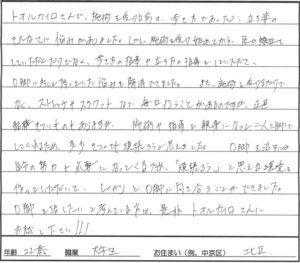 トオルカイロさんで、施術を受ける前は、歩き方であったり、立ち姿の
悩みがありました。しかし、施術を受け始めてから、足の矯正を
していただくだけでなく、歩き方の指導や立ち方の指導をしていただいて、
O脚に対し悩みを解消できました。また、施術を受けるだけで
なく、ストレッチやスクワットなど毎日行うことがあるのですが、正直
結構きついものもありますが、施術や指導を親身になって二人三脚で
してくれるため、頑張ろうと思えました。O脚を治すには
自分の努力も必要になってくるが、「頑張ろう」と思える環境を
作っていただいて、しっかりとO脚に向き合うことができました。
O脚を治したいと考えている方は、是非トオルカイロさんに
お越し下さい!!!
年齢 22歳 職業 大学生 お住まい(例、中京区) 北区